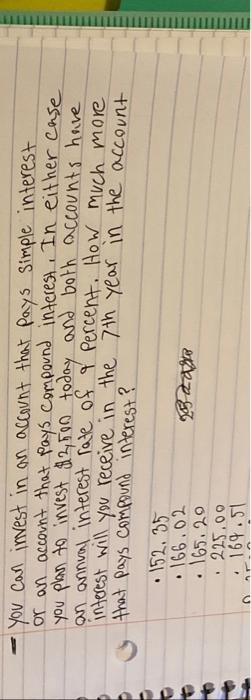 - You can invest in an account that pays simple interest
or an account that pays compound interest. In either case
you plan to invest $2,500 today and both accounts have
an annual interest rate of 9 percent. How much more
interest will you receive in the 7th year in the account
that pays compound interest?
• 152.35
• 166.02
• 165.20
• 225.00
• 169.51